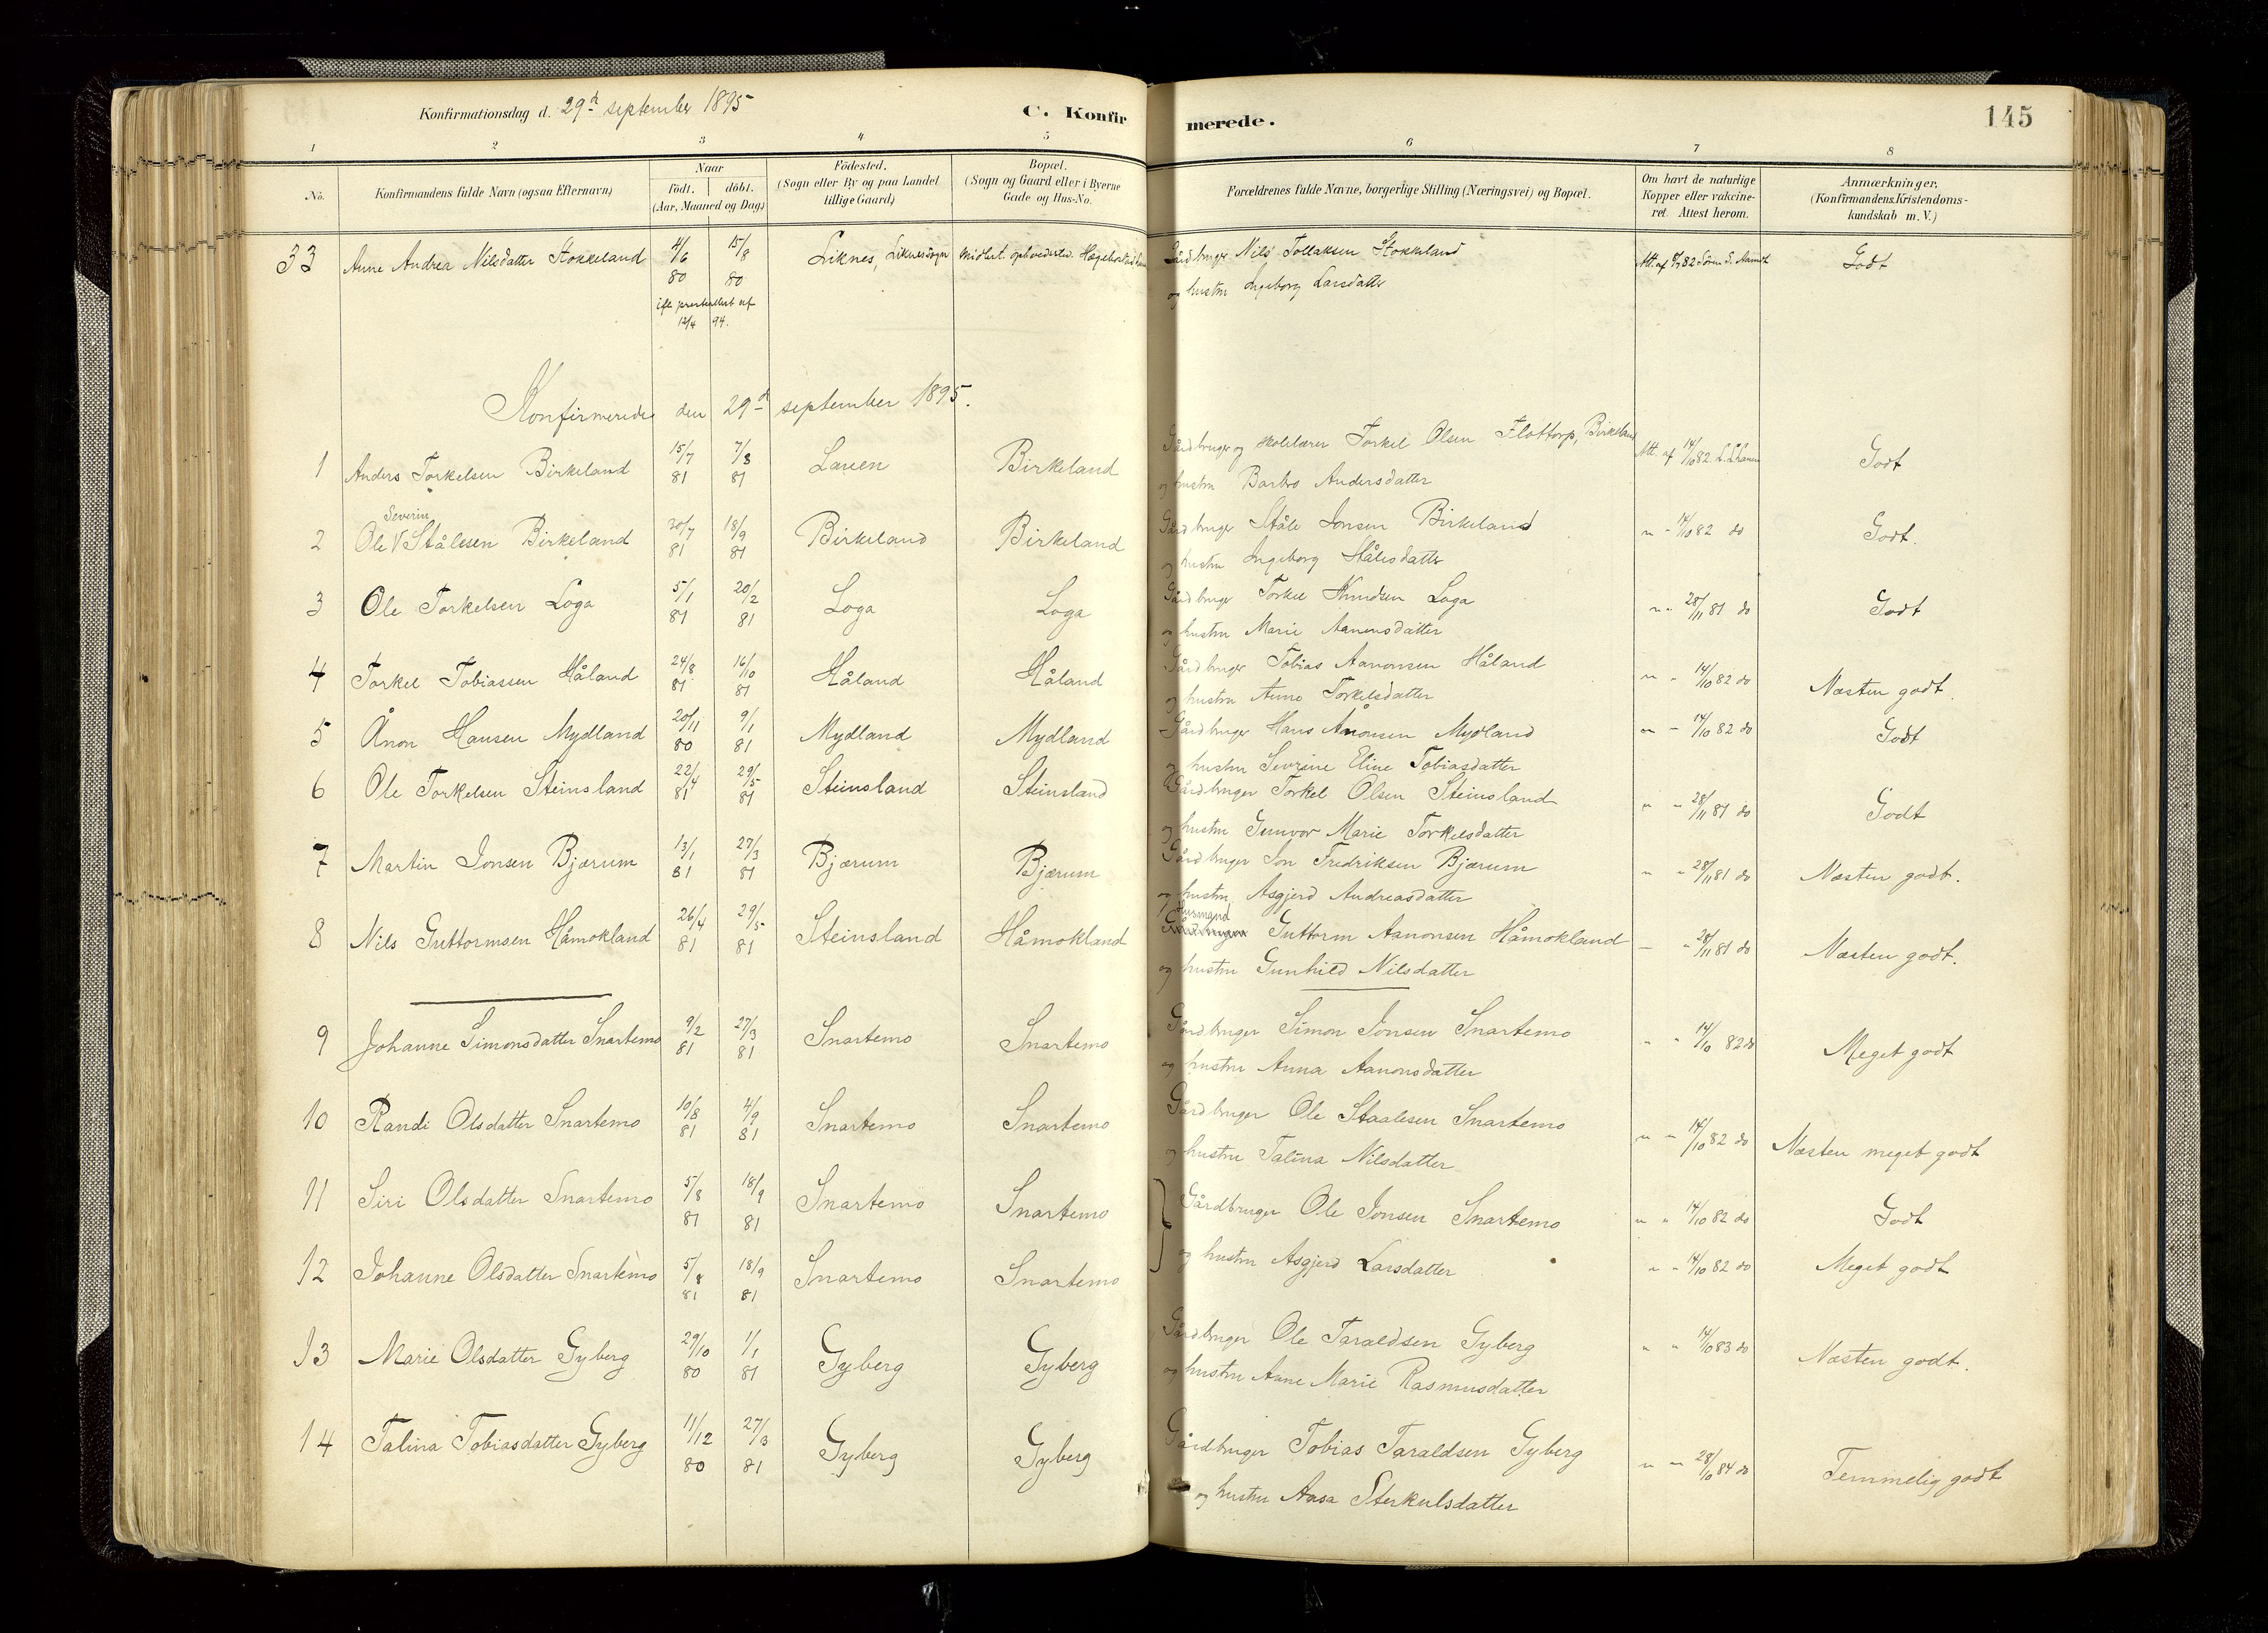 Konfirmationsdag d. 29d september 1895
C. Konfirmerede.
145
1 2 3 4 5 6 7 8
No. Konfirmandens fulde Navn (ogsaa Efternavn) Naar født. døbt. (Aar, Maaned og Dag) Födested. (Sogn eller By og paa Landet tillige Gaard) Bopæl. (Sogn og Gaard eller i Byerne Gade og Hus-No. Forældrenes fulde Navne, borgerlige Stilling (Næringsvei) og Bopæl. Om havt de naturlige Kopper eller vakcineret. Attest herom. Anmærkninger. (Konfirmandens Kristendomskundskab m. V.)
33 Anne Andrea Nilsdatter Stokkeland 4/6 80 15/8 80 Liknes, Liknes sogn Gårdbruger Nils Tollaksen Stokkeland Godt
ifl. prestattest af 12/4 94.
og hustru Ingeborg Larsdatter
Konfirmerede den 29d september 1895.
1 Anders Torkelsen Birkeland 15/7 81 7/8 81 Lauen Birkeland Gårdbruger og skolelærer Torkel Olsen Flottorp, Birkeland Att. af 14/10 82 Godt
og hustru Barbro Andersdatter
2 Ole Severin Stålesen Birkeland 30/7 81 18/9 81 Birkeland Birkeland Gårdbruger Ståle Jonsen Birkeland " " 14/10 82 do Godt.
og hustru Ingeborg Stålesdatter
3 Ole Torkelsen Loga 5/1 81 20/2 81 Loga Loga Gårdbruger Torkel Knudsen Loga " " 28/11 81 do Godt
og hustru Marie Aanensdatter
4 Torkel Tobiassen Håland 24/8 81 16/10 81 Håland Håland Gårdbruger Tobias Aanonsen Håland " " 14/10 82 do Næsten godt.
og hustru Anne Torkelsdatter
5 Ånon Hansen Mydland 20/11 80 9/1 81 Mydland Mydland Gårdbruger Hans Aanonsen Mydland " " 14/10 82 do Godt
og hustru Sevrine Eline Tobiasdatter
6 Ole Torkelsen Steinsland 22/4 81 29/5 81 Steinsland Steinsland Gårdbruger Torkel Olsen Steinsland " " 28/11 81 do Godt
og hustru Gunvor Marie Torkelsdatter
7 Martin Jonsen Bjærum 13/1 81 27/3 81 Bjærum Bjærum Gårdbruger Jon Fredriksen Bjærum " " 28/11 81 do Næsten godt.
og hustru Asgjerd Andreasdatter
8 Nils Guttormsen Håmokland 26/4 81 29/5 81 Steinsland Håmokland Husmand Guttorm Aanonsen Håmokland " " 28/11 81 do Næsten godt.
og hustru Gunhild Nilsdatter
9 Johanne Simonsdatter Snartemo 9/2 81 27/3 81 Snartemo Snartemo Gårdbruger Simon Jonsen Snartemo " " 14/10 82 do Meget godt
og hustru Anna Aanonsdatter
10 Randi Olsdatter Snartemo 10/8 81 4/9 81 Snartemo Snartemo Gårdbruger Ole Staalesen Snartemo " " 14/10 82 do Næsten meget godt
og hustru Talina Nilsdatter
11 Siri Olsdatter Snartemo 5/8 81 18/9 81 Snartemo Snartemo Gårdbruger Ole Jonsen Snartemo " " 14/10 82 do Godt
12 Johanne Olsdatter Snartemo 5/8 81 18/9 81 Snartemo Snartemo og hustru Asgjerd Larsdatter " " 14/10 82 do Meget godt
13 Marie Olsdatter Gyberg 29/10 80 1/1 81 Gyberg Gyberg Gårdbruger Ole Taraldsen Gyberg " " 14/10 83 do Næsten godt.
og hustru Anne Marie Rasmusdatter
14 Talina Tobiasdatter Gyberg 11/12 80 27/3 81 Gyberg Gyberg Gårdbruger Tobias Taraldsen Gyberg " " 28/10 84 do Temmelig godt
og hustru Aasa Sterkulsdatter